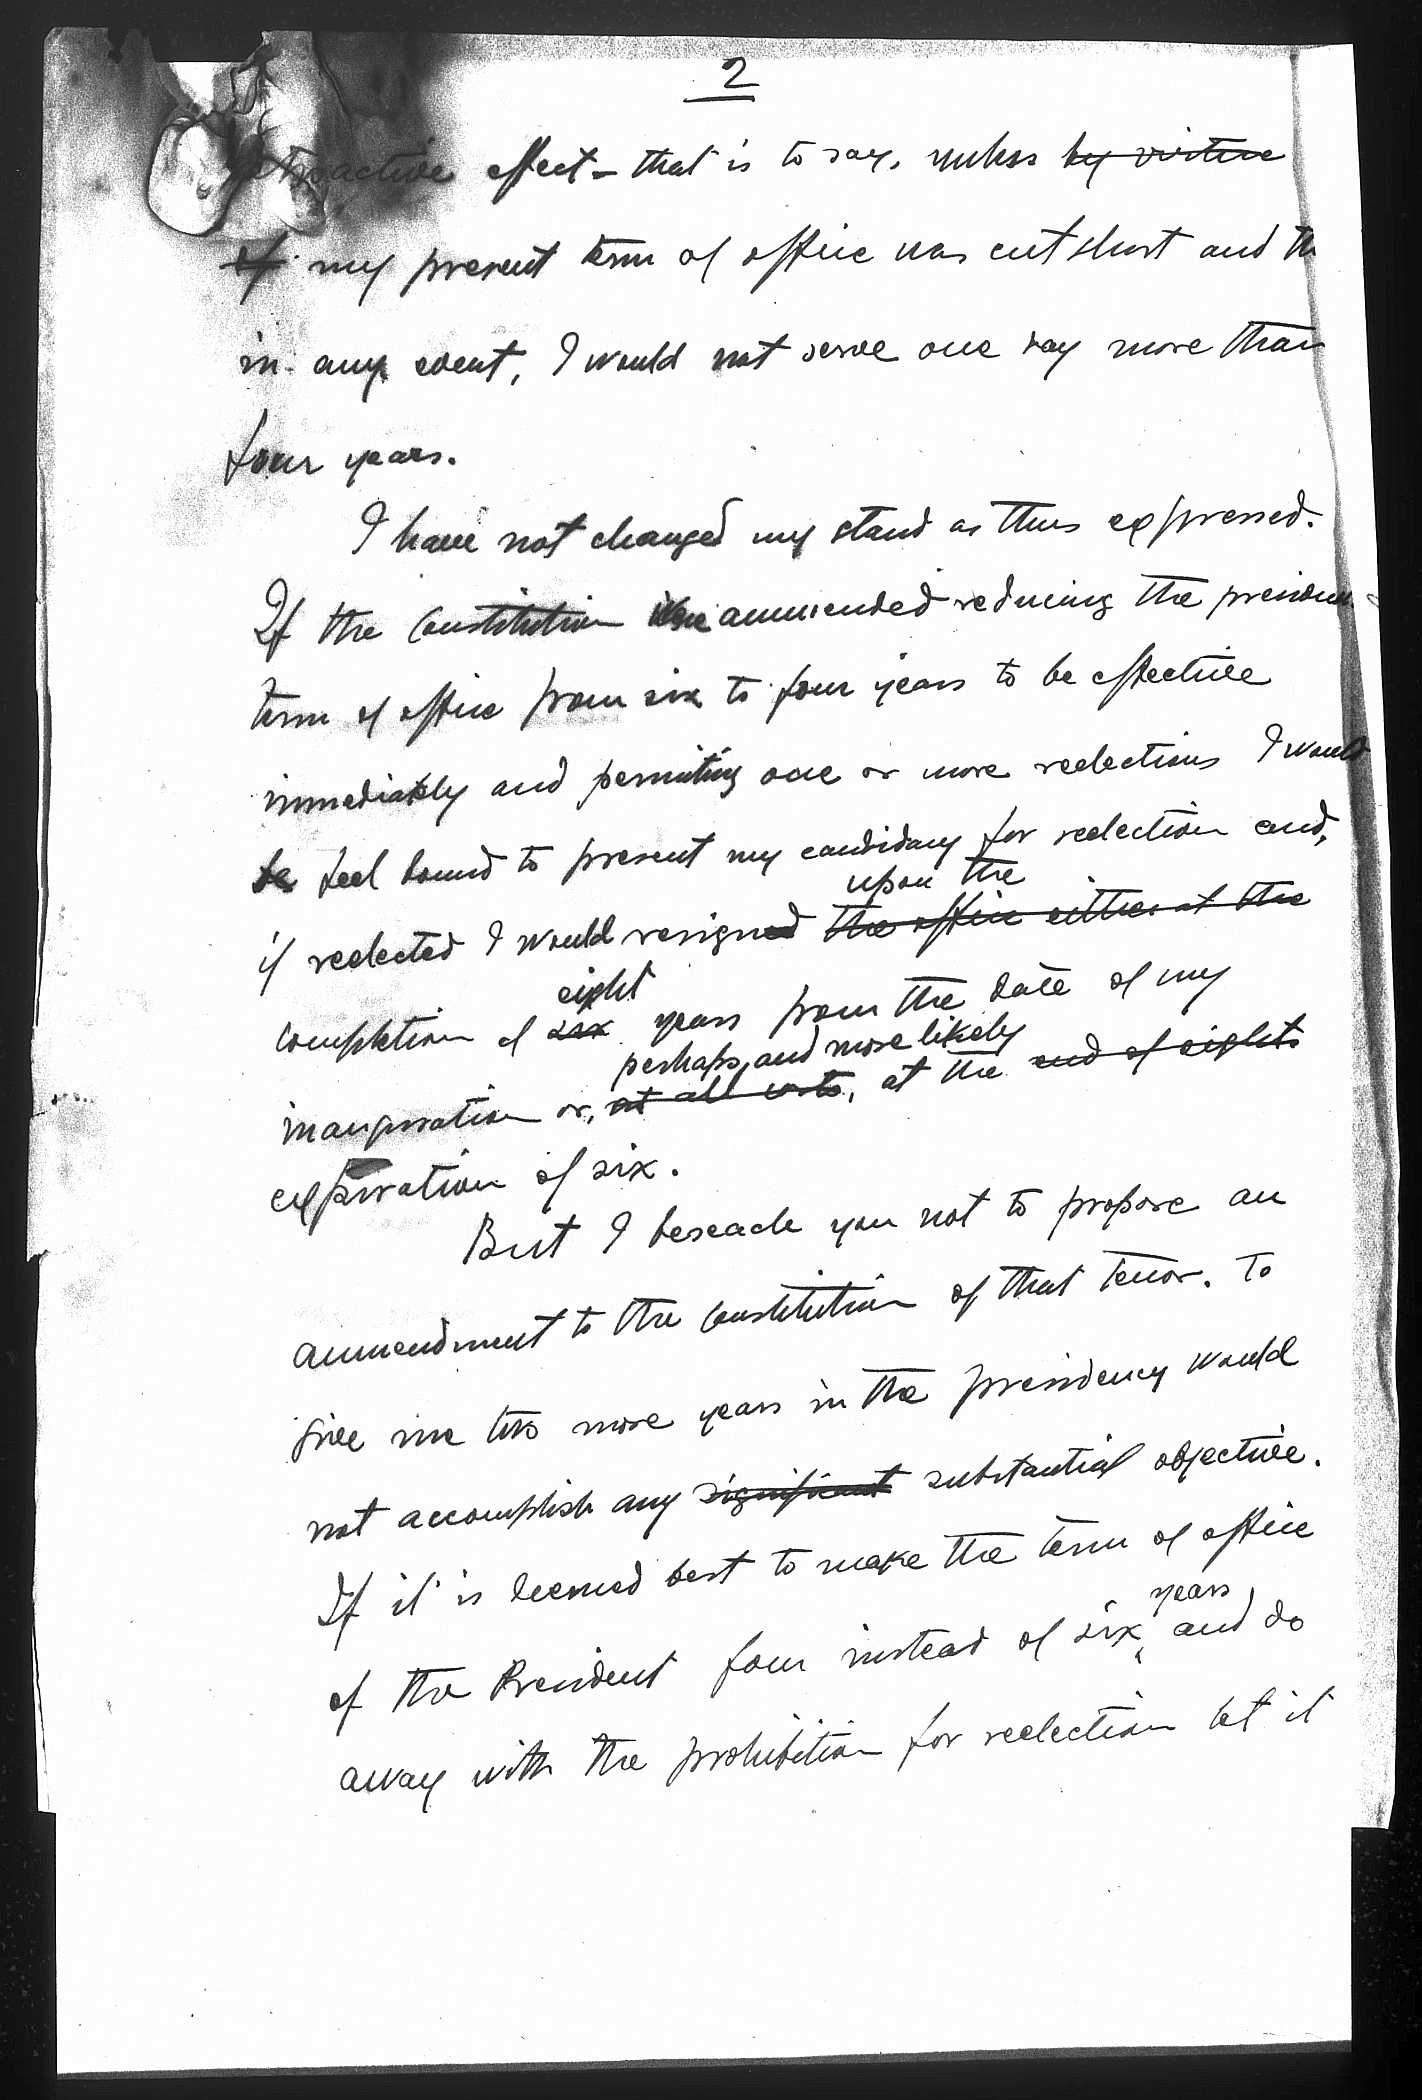 2
effect - that is to say, unless by virtue
of my present term of office was cut short and
in any event, I would not serve one day more than
four years.
I have not changed my stand as thus expressed.
If the Constitution ammended reducing the
term of office from six to four years to be effective
immediately and permitting one or more reelections I would
be feel bound to present my candidacy for reelection and,
upon the
if reelected I would resigned the office either at the
eight
completion of six years from the date of my
perhaps, and more likely
inauguration or, at all costs, at the end of eight
expiration of six.
But I beseach you not to propose an
ammendment to the constitution of that tenor. To
give me two more years in the presidency would
not accomplish any significant substantial objective.
If it is deemed best to make the term of office
years
of the President four instead of six, and do
away with the prohibition for reelection let it